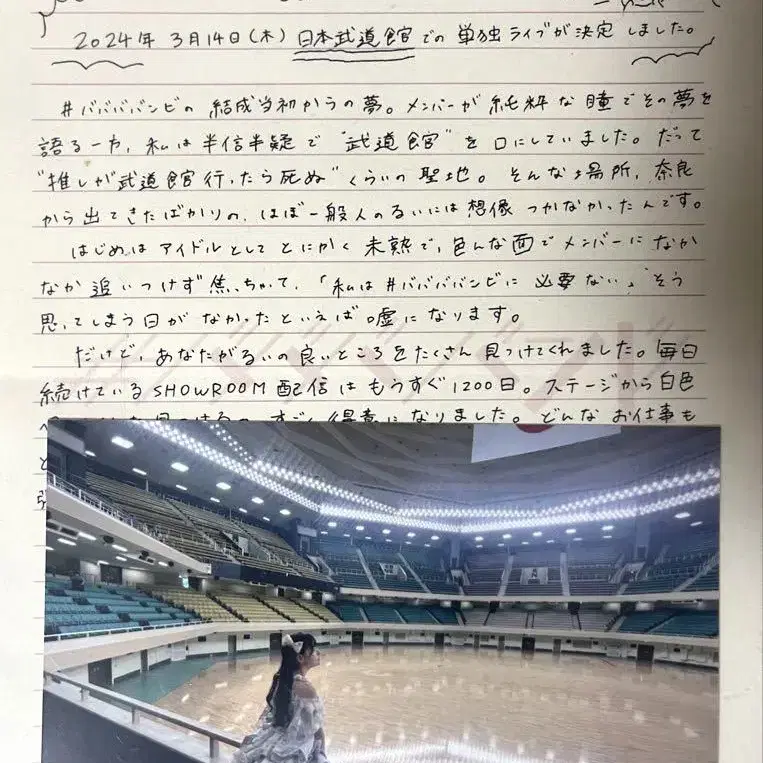 2024年 3月14日(木) 日本武道館での 単独ライブが決定しました。
#ババババンビの 結成当初からの夢。メンバーが純粋な瞳でその夢を
語る一方、私は半信半疑で "武道館" を口にしていました。だって
"推しが武道館行ったら死ぬ" くらいの聖地。そんな場所、奈良
から出てきたばかりの、ほぼ一般人のるいには想像つかなかったんです。
はじめはアイドルとしてとにかく未熟で、色んな面でメンバーになか
なか追いつけず焦っちゃて、「私は#ババババンビに必要ない」そう
思ってしまう日がなかったといえば嘘になります。
だけど、あなたがるいの良いところをたくさん見つけてくれました。毎日
続けているSHOWROOM配信はもうすぐ1200日。ステージから白色
得意になりました。どんなお仕事も